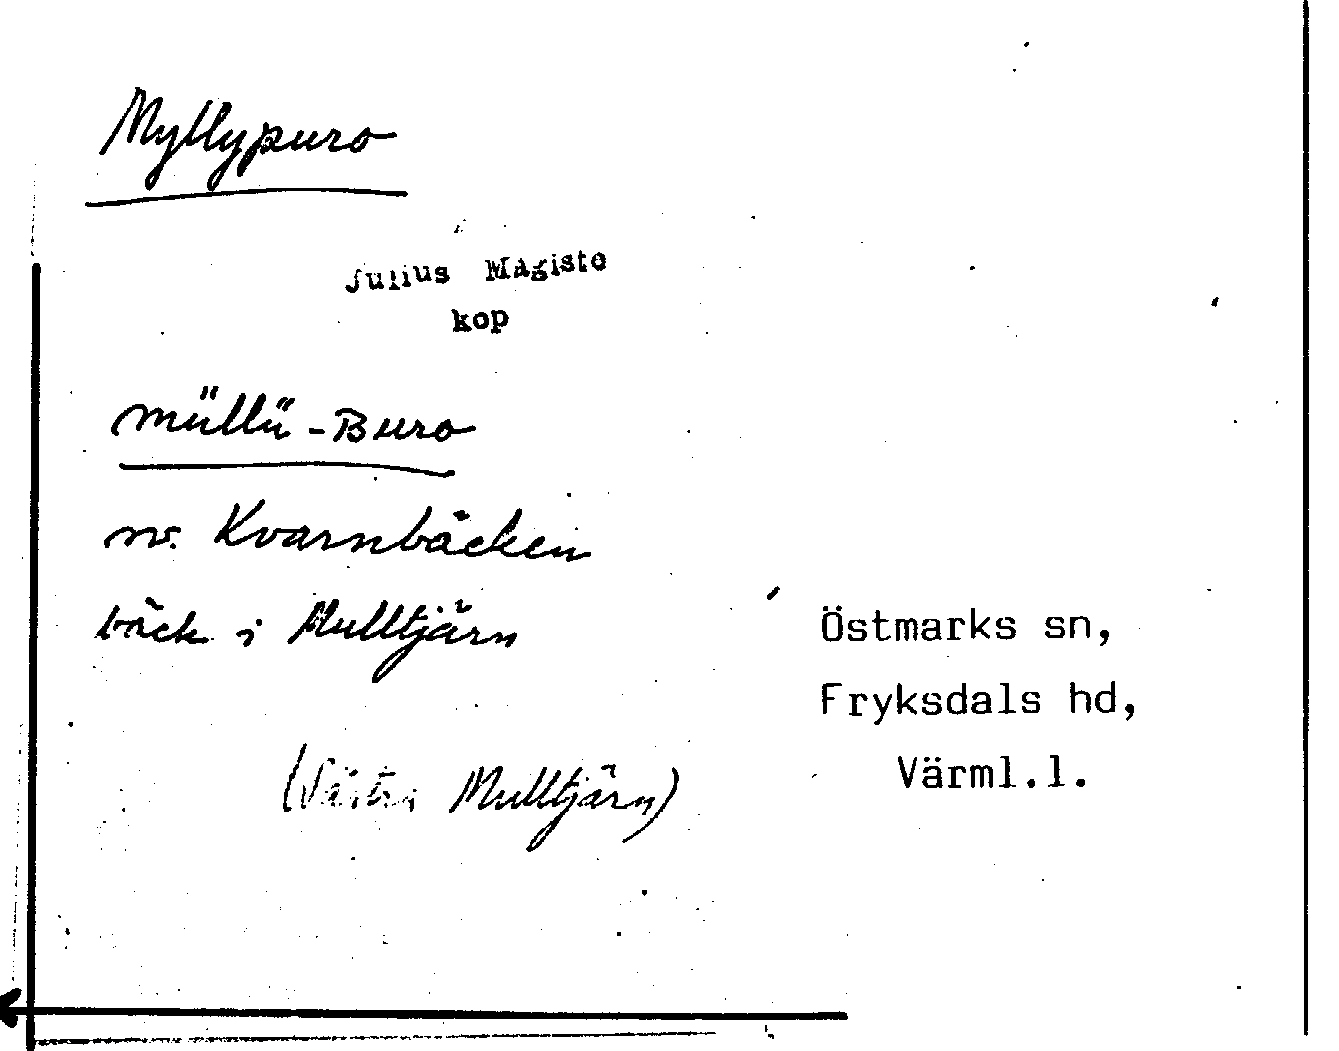 Myllypuro
Julius Mägiste
kop
müllü-Buro
sv. Kvarnbäcken
bäck i Mulltjärn
Östmarks sn,
Fryksdals hd,
(Västra Mulltjärn)
Värml.l.